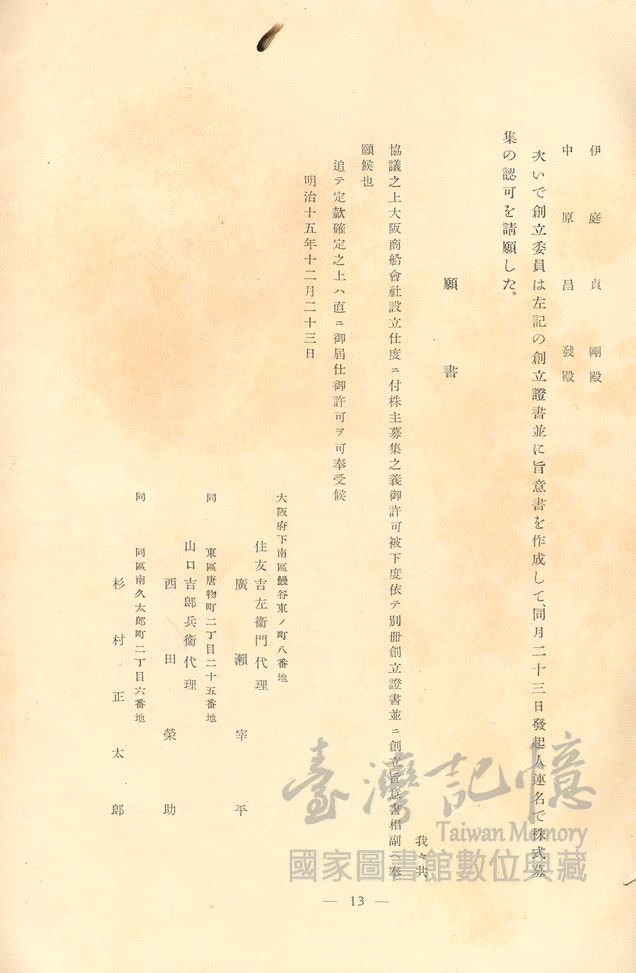 伊庭貞剛殿
中原昌發殿
次いで創立委員は左記の創立證書並に旨意書を作成して、同月二十三日發起人連名で株式募
集の認可を請願した。
願書
我々共
協議之上大阪商船會社設立仕度ニ付株主募集之義御許可被下度依テ別册創立證書並ニ創立旨意書相副へ奉
願候也
追テ定款確定之上ハ直ニ御屆仕御許可ヲ可奉受候
明治十五年十二月二十三日
大阪府下南區鰻谷東ノ町八番地
住友吉左衞門代理
廣瀨宰平
同 東區唐物町二丁目二十五番地
山口吉郎兵衞代理
西田榮助
同 同區南久太郎町二丁目六番地
杉村正太郎
臺灣記憶
Taiwan Memory
國家圖書館數位典藏
— 13 —